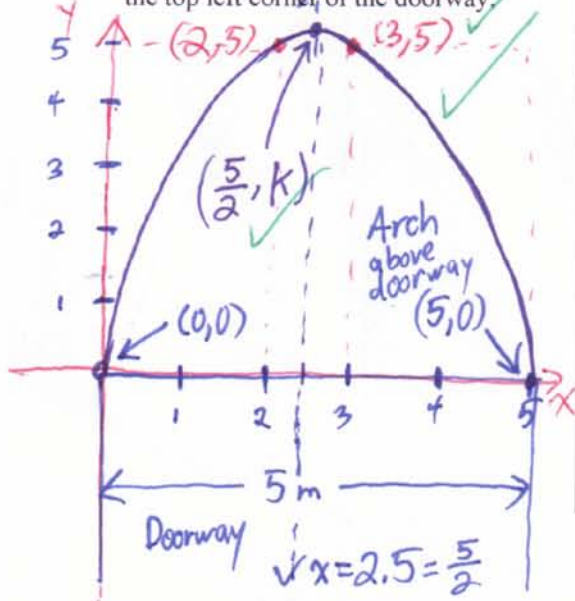 the top left corner of the doorway.
Y
5 (2,5) (3,5)
4
3
(5/2, K)
2
Arch
above
doorway
1
(0,0) (5,0)
1 2 3 4 5 X
5 m
Doorway
√ x=2.5=5/2